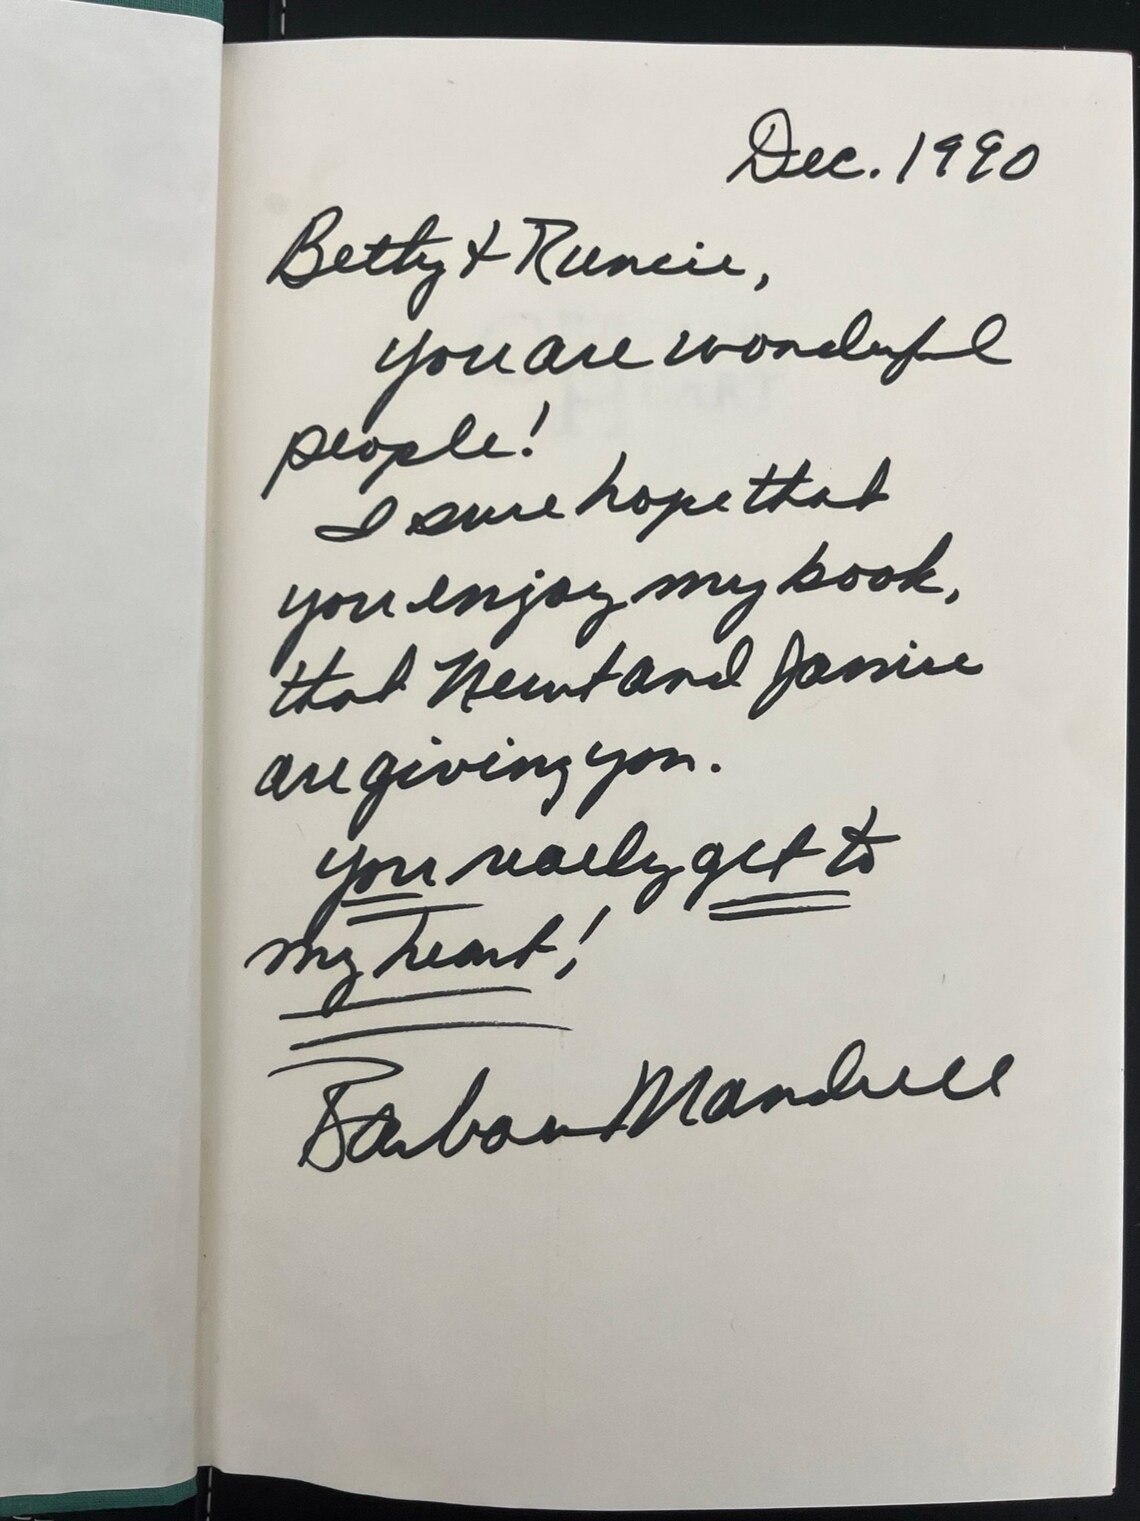 Dec. 1990
Betty & Runcie,
you are wonderful
people!
I sure hope that
you enjoy my book,
that Newt and Janice
are giving you.
you really get to
my heart!
Barbara Mandrell